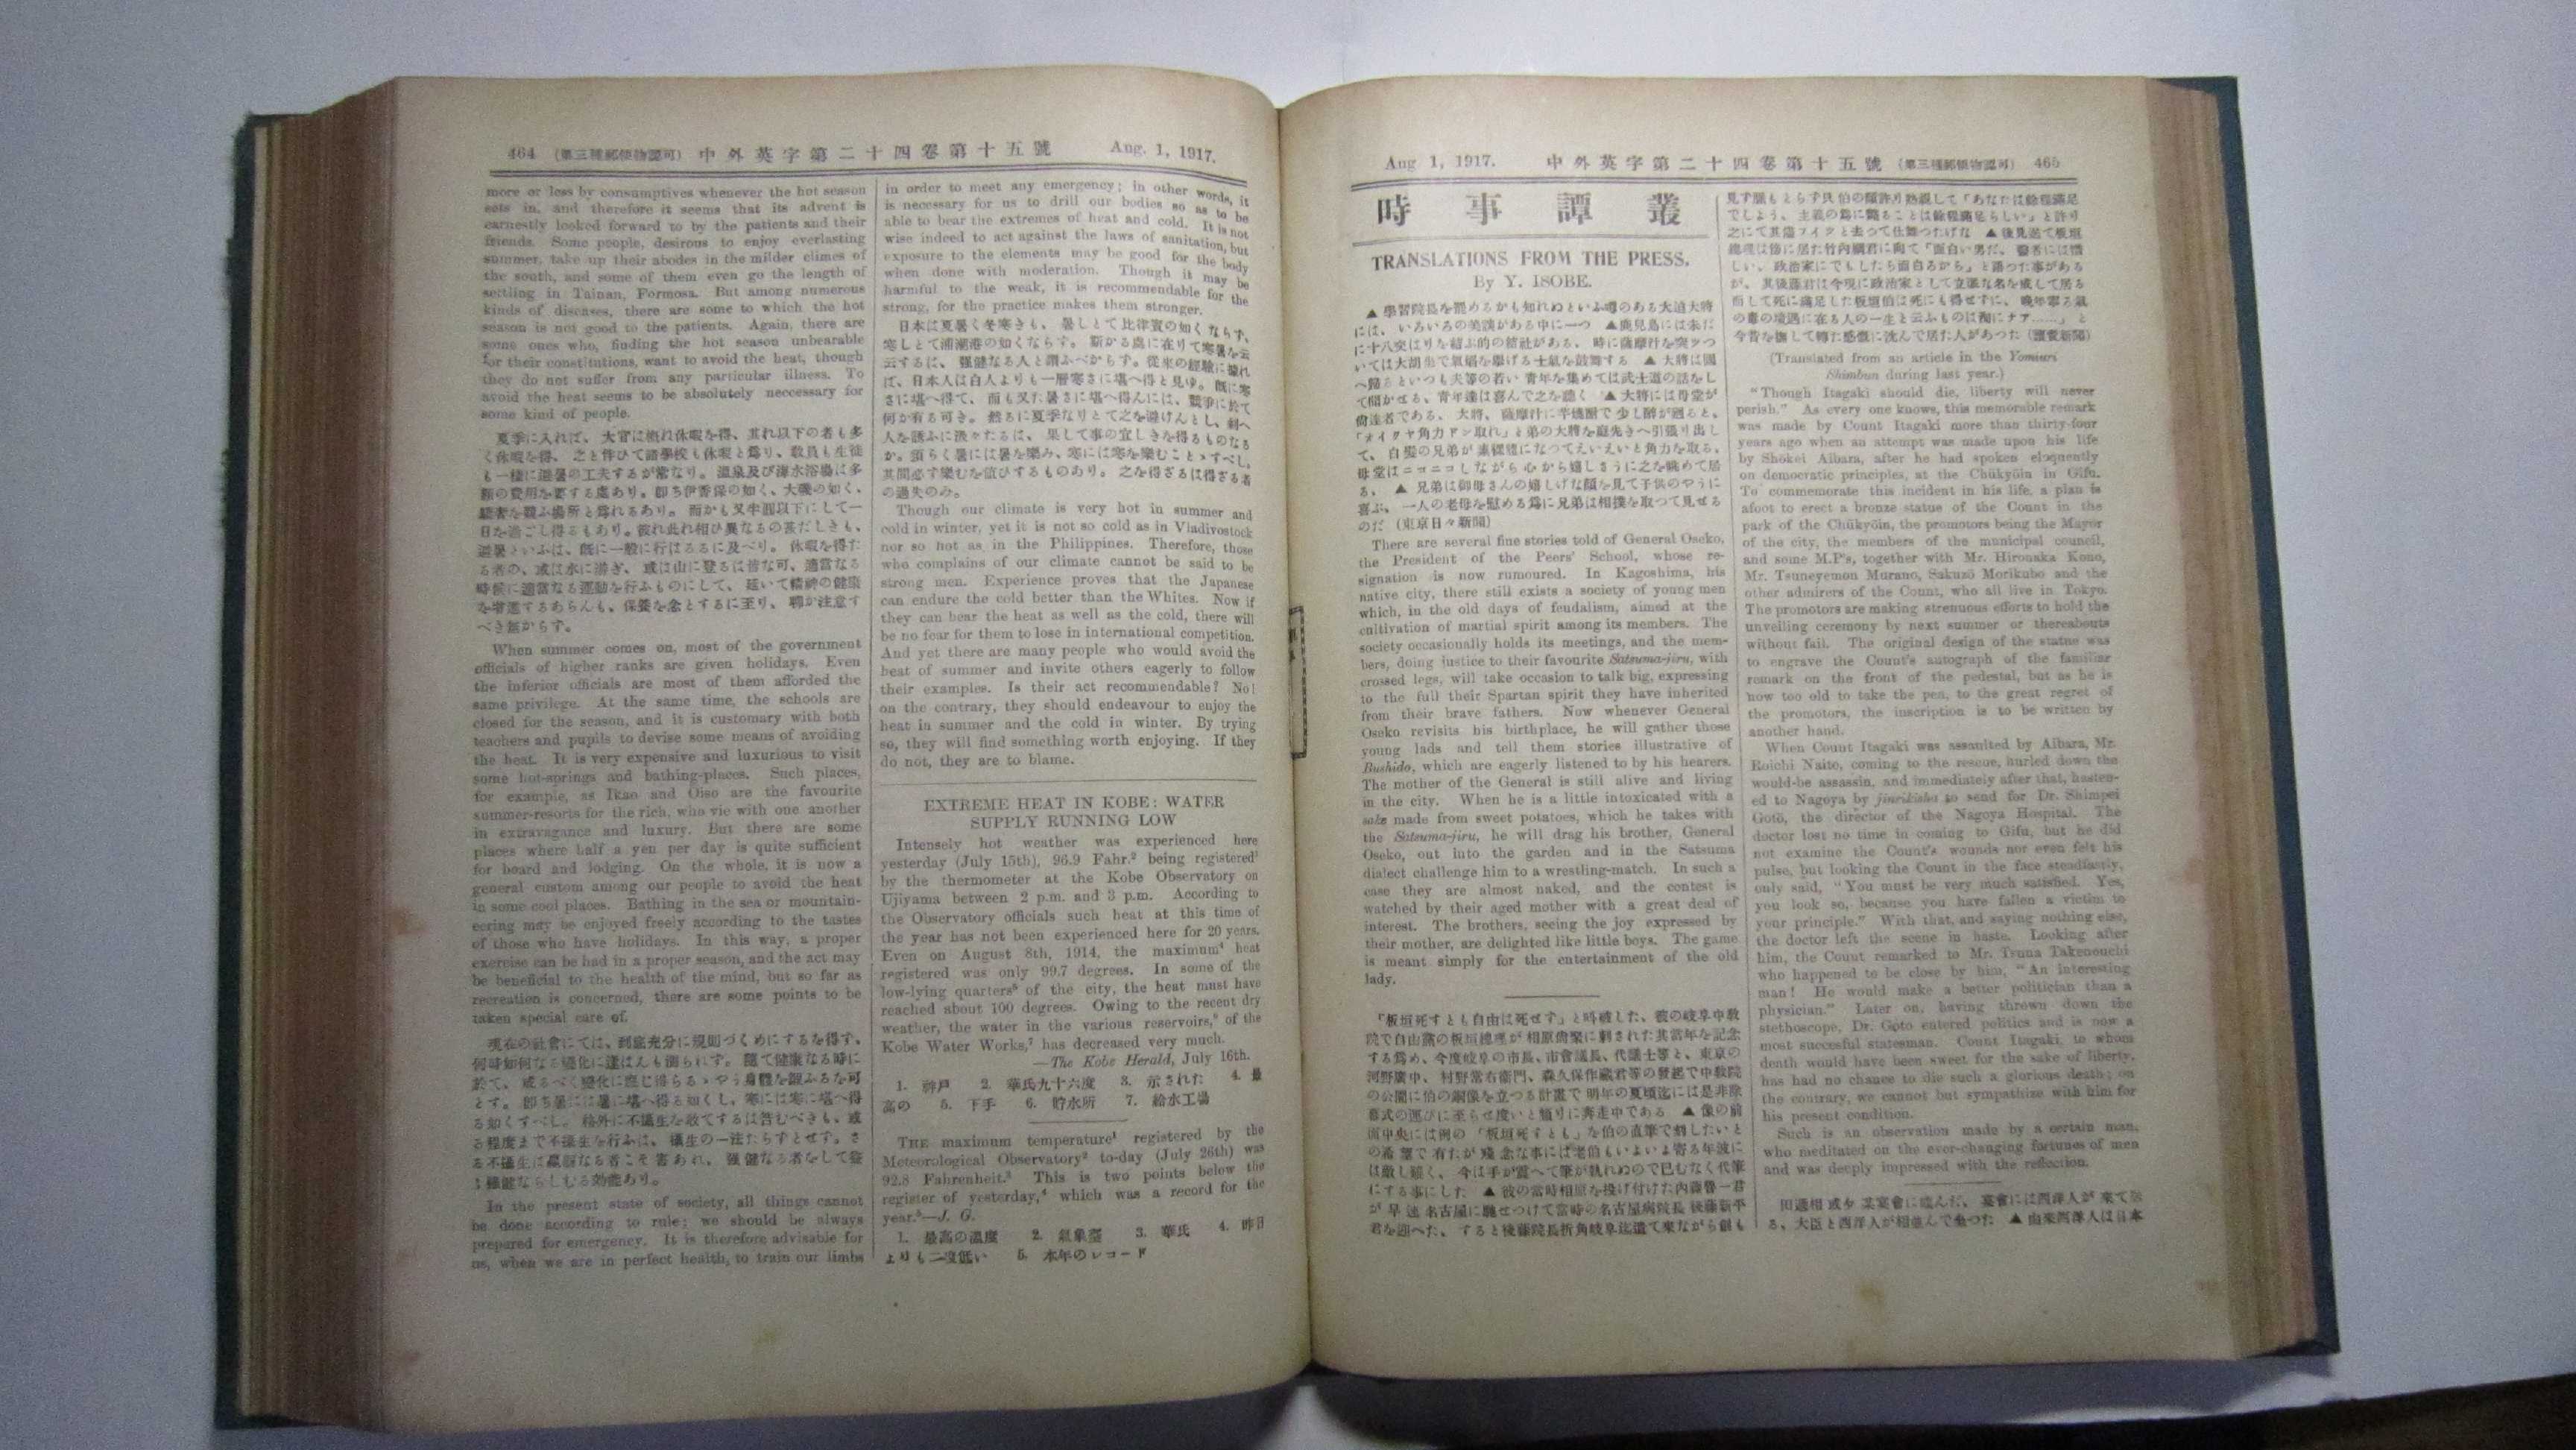 464 (第三種郵便物認可) 中外英字第二十四卷第十五號 Aug. 1, 1917.
more or less by consumptives whenever the hot season
sets in, and therefore it seems that its advent is
earnestly looked forward to by the patients and their
friends. Some people, desirous to enjoy everlasting
summer, take up their abodes in the milder climes of
the south, and some of them even go the length of
settling in Tainan, Formosa. But among numerous
kinds of diseases, there are some to which the hot
season is not good to the patients. Again, there are
some ones who, finding the hot season unbearable
for their constitutions, want to avoid the heat, though
they do not suffer from any particular illness. To
avoid the heat seems to be absolutely neccessary for
some kind of people.
夏季に入れば、大官は概れ休暇を得、其れ以下の者も多
く休暇を得、之と伴ひて諸學校も休暇と爲り、敎員も生徒
も一樣に避暑の工夫するが常なり。溫泉及び海水浴場は多
額の費用を要する處あり。卽ち伊香保の如く、大磯の如く、
驕奢を競ふ場所と爲れるあり。而かも又半圓以下にして一
日を過ごし得るもあり。彼れ此れ相ひ異なるの甚だしきも、
避暑といふは、既に一般に行はるるに及べり。休暇を得た
る者の、或は水に游ぎ、或は山に登るは皆な可、適當なる
時候に適當なる運動を行ふものにして、延いて精神の健康
を增進するあらんも、保養を念とするに至り、聊か注意す
べき無からず。
When summer comes on, most of the government
officials of higher ranks are given holidays. Even
the inferior officials are most of them afforded the
same privilege. At the same time, the schools are
closed for the season, and it is customary with both
teachers and pupils to devise some means of avoiding
the heat. It is very expensive and luxurious to visit
some hot-springs and bathing-places. Such places,
for example, as Ikao and Oiso are the favourite
summer-resorts for the rich, who vie with one another
in extravagance and luxury. But there are some
places where half a yen per day is quite sufficient
for board and lodging. On the whole, it is now a
general custom among our people to avoid the heat
in some cool places. Bathing in the sea or mountain-
eering may be enjoyed freely according to the tastes
of those who have holidays. In this way, a proper
exercise can be had in a proper season, and the act may
be beneficial to the health of the mind, but so far as
recreation is concerned, there are some points to be
taken special care of.
現在の社會にては、到底充分に規則づくめにするを得す、
何時如何なる變化に逢はんも測られず。隨て健康なる時に
於て、成るべく變化に應じ得らるゝやう身體を鍛ふるを可
とす。卽ち暑には暑に堪へ得る如くし、寒には寒に堪へ得
る如くすべし。格外に不攝生を敢てするは咎むべきも、或
る程度まで不攝生を行ふは、攝生の一法たらずとせず。さ
る不攝生に羸弱なる者こそ害あれ、强健なる者をして益
々强健ならしむる効能あり。
In the present state of society, all things cannot
be done according to rule; we should be always
prepared for emergency. It is therefore advisable for
us, when we are in perfect health, to train our limbs
in order to meet any emergency; in other words, it
is necessary for us to drill our bodies so as to be
able to bear the extremes of heat and cold. It is not
wise indeed to act against the laws of sanitation, but
exposure to the elements may be good for the body
when done with moderation. Though it may be
harmful to the weak, it is recommendable for the
strong, for the practice makes them stronger.
日本は夏暑く冬寒きも、暑しとて比律賓の如くならす、
寒しとて浦潮港の如くならす。斯かる處に在りて寒暑を云
云するは、强健なる人と謂ふべからす。從來の經驗に據れ
ば、日本人は白人よりも一層寒さに堪へ得と見ゆ。既に寒
さに堪へ得て、而も又た暑さに堪へ得んには、競爭に於て
何か有る可き。然るに夏季なりとて之を避けんとし、剩へ
人を誘ふに汲々たるは、果して事の宜しきを得るものなる
か。須らく暑には暑を樂み、寒には寒を樂むことゝすべし。
其間必ず樂むを値ひするものあり。之を得ざるは得ざる者
の過失のみ。
Though our climate is very hot in summer and
cold in winter, yet it is not so cold as in Vladivostock
nor so hot as in the Philippines. Therefore, those
who complains of our climate cannot be said to be
strong men. Experience proves that the Japanese
can endure the cold better than the Whites. Now if
they can bear the heat as well as the cold, there will
be no fear for them to lose in international competition.
And yet there are many people who would avoid the
heat of summer and invite others eagerly to follow
their examples. Is their act recommendable? No!
on the contrary, they should endeavour to enjoy the
heat in summer and the cold in winter. By trying
so, they will find something worth enjoying. If they
do not, they are to blame.
EXTREME HEAT IN KOBE: WATER
SUPPLY RUNNING LOW
Intensely hot weather was experienced here
yesterday (July 15th), 96.9 Fahr.² being registered³
by the thermometer at the Kobe Observatory on
Ujiyama between 2 p.m. and 3 p.m. According to
the Observatory officials such heat at this time of
the year has not been experienced here for 20 years.
Even on August 8th, 1914, the maximum⁴ heat
registered was only 99.7 degrees. In some of the
low-lying quarters⁵ of the city, the heat must have
reached about 100 degrees. Owing to the recent dry
weather, the water in the various reservoirs,⁶ of the
Kobe Water Works,⁷ has decreased very much.
—The Kobe Herald, July 16th.
1. 神戶 2. 華氏九十六度 3. 示された 4. 最
高の 5. 下手 6. 貯水所 7. 給水工場
THE maximum temperature¹ registered by the
Meteorological Observatory² to-day (July 26th) was
92.8 Fahrenheit.³ This is two points below the
register of yesterday,⁴ which was a record for the
year.⁵—J. G.
1. 最高の溫度 2. 氣象臺 3. 華氏 4. 昨日
よりも二度低い 5. 本年のレコード
Aug 1, 1917. 中外英字第二十四卷第十五號 (第三種郵便物認可) 465
時事譚叢
TRANSLATIONS FROM THE PRESS.
By Y. ISOBE.
▲學習院長を罷めるかも知れぬといふ噂のある大迫大將
には、いろいろの美談がある中に一つ ▲鹿兒島には未だ
に十八突はりを結ぶ的の結社がある、時に薩摩汁を突ッつ
いては大胡坐で氣焰を擧げる士氣を鼓舞する ▲大將は國
へ歸るといつも夫等の若い靑年を集めては武士道の話をし
て聞かせる、靑年達は喜んで之を聽く ▲大將には母堂が
尙達者である、大將、薩摩汁に芋燒酎で少し醉が廻ると、
「オイクヤ角力ドン取れ」と弟の大將を庭先きへ引張り出し
て、白髮の兄弟が素裸體になつてえいえいと角力を取る、
母堂はニコニコしながら心から嬉しさうに之を眺めて居
る、 ▲兄弟は御母さんの嬉しげな顏を見て子供のやうに
喜ぶ、一人の老母を慰める爲に兄弟は相撲を取つて見せる
のだ (東京日々新聞)
There are several fine stories told of General Oseko,
the President of the Peers' School, whose re-
signation is now rumoured. In Kagoshima, his
native city, there still exists a society of young men
which, in the old days of feudalism, aimed at the
cultivation of martial spirit among its members. The
society occasionally holds its meetings, and the mem-
bers, doing justice to their favourite Satsuma-jiru, with
crossed legs, will take occasion to talk big, expressing
to the full their Spartan spirit they have inherited
from their brave fathers. Now whenever General
Oseko revisits his birthplace, he will gather those
young lads and tell them stories illustrative of
Bushido, which are eagerly listened to by his hearers.
The mother of the General is still alive and living
in the city. When he is a little intoxicated with a
sake made from sweet potatoes, which he takes with
the Satsuma-jiru, he will drag his brother, General
Oseko, out into the garden and in the Satsuma
dialect challenge him to a wrestling-match. In such a
case they are almost naked, and the contest is
watched by their aged mother with a great deal of
interest. The brothers, seeing the joy expressed by
their mother, are delighted like little boys. The game
is meant simply for the entertainment of the old
lady.
「板垣死すとも自由は死せず」と呌破した、彼の岐阜中敎
院で自由黨の板垣總理が相原尙褧に刺された其當年を記念
する爲め、今度岐阜の市長、市會議長、代議士等と、東京の
河野廣中、村野常右衞門、森久保作藏君等の發起で中敎院
の公園に伯の銅像を立つる計畫で明年の夏頃迄には是非除
幕式の運びに至らせ度いと頻りに奔走中である ▲像の前
面中央には例の「板垣死すとも」を伯の直筆で刻したいと
の希望で有たが殘念な事には老伯もいよいよ寄る年波に
は敵し難く、今は手が震へて筆が執れぬので已むなく代筆
にする事にした ▲彼の當時相原を投げ付けた內藤魯一君
が早速名古屋に馳せつけて當時の名古屋病院長後藤新平
君を迎へた、すると後藤院長折角岐阜迄遣て來ながら創も
見ず脈もとらず只伯の顏許り熟視して「あなたは餘程滿足
でしよう、主義の爲に斃ることは餘程滿足らしい」と許り
之にて其儘フイクと去つて仕舞つたげな ▲後見送て板垣
總理は傍に居た竹內綱君に向て「面白い男だ、醫者には惜
しい、政治家にでもしたら面白るから」と語つた事がある
が、其後藤君は今現に政治家として立派な名を成して居る
而して死に滿足した板垣伯は死にも得せずに、晚年寄る氣
の毒の境遇に在る人の一生と云ふものは洵にナア……」と
今昔を撫して轉た感慨に沈んで居た人があつた (讀賣新聞)
(Translated from an article in the Yomiuri
Shimbun during last year.)
"Though Itagaki should die, liberty will never
perish." As every one knows, this memorable remark
was made by Count Itagaki more than thirty-four
years ago when an attempt was made upon his life
by Shōkei Aibara, after he had spoken eloquently
on democratic principles, at the Chūkyōin in Gifu.
To commemorate this incident in his life, a plan is
afoot to erect a bronze statue of the Count in the
park of the Chūkyōin, the promotors being the Mayor
of the city, the members of the municipal council,
and some M.P's, together with Mr. Hironaka Kono,
Mr. Tsuneyemon Murano, Sakuzō Morikubo and the
other admirers of the Count, who all live in Tokyo.
The promotors are making strenuous efforts to hold the
unveiling ceremony by next summer or thereabouts
without fail. The original design of the statue was
to engrave the Count's autograph of the familiar
remark on the front of the pedestal, but as he is
now too old to take the pen, to the great regret of
the promotors, the inscription is to be written by
another hand.
When Count Itagaki was assaulted by Aibara, Mr.
Roichi Naito, coming to the rescue, hurled down the
would-be assassin, and immediately after that, hasten-
ed to Nagoya by jinrikisha to send for Dr. Shimpei
Gotō, the director of the Nagoya Hospital. The
doctor lost no time in coming to Gifu, but he did
not examine the Count's wounds nor even felt his
pulse, but looking the Count in the face steadfastly,
only said, "You must be very much satisfied. Yes,
you look so, because you have fallen a victim to
your principle." With that, and saying nothing else,
the doctor left the scene in haste. Looking after
him, the Count remarked to Mr. Tsuna Takenouchi
who happened to be close by him, "An interesting
man! He would make a better politician than a
physician." Later on, having thrown down the
stethoscope, Dr. Goto entered politics and is now a
most succesful statesman. Count Itagaki, to whom
death would have been sweet for the sake of liberty,
has had no chance to die such a glorious death; on
the contrary, we cannot but sympathize with him for
his present condition.
Such is an observation made by a certain man,
who meditated on the ever-changing fortunes of men
and was deeply impressed with the reflection.
田遞相或夕某宴會に臨んだ、宴會には西洋人が來て居
る、大臣と西洋人が相並んで坐つた ▲由來西洋人は日本